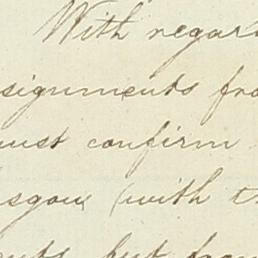 With regar
signments fro
ust confirm
sgow (with t
ents, but from